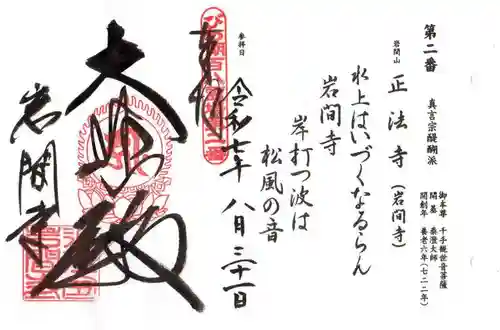 第二番
真言宗醍醐派
御本尊 千手観世音菩薩
開基 泰澄大師
開創年 養老六年(七二二年)
岩間山
正法寺(岩間寺)
水上はいづくなるらん
岩間寺
岸打つ波は
松風の音
参拝日
令和七年 八月三十一日
奉拝
大悲殿
岩間寺